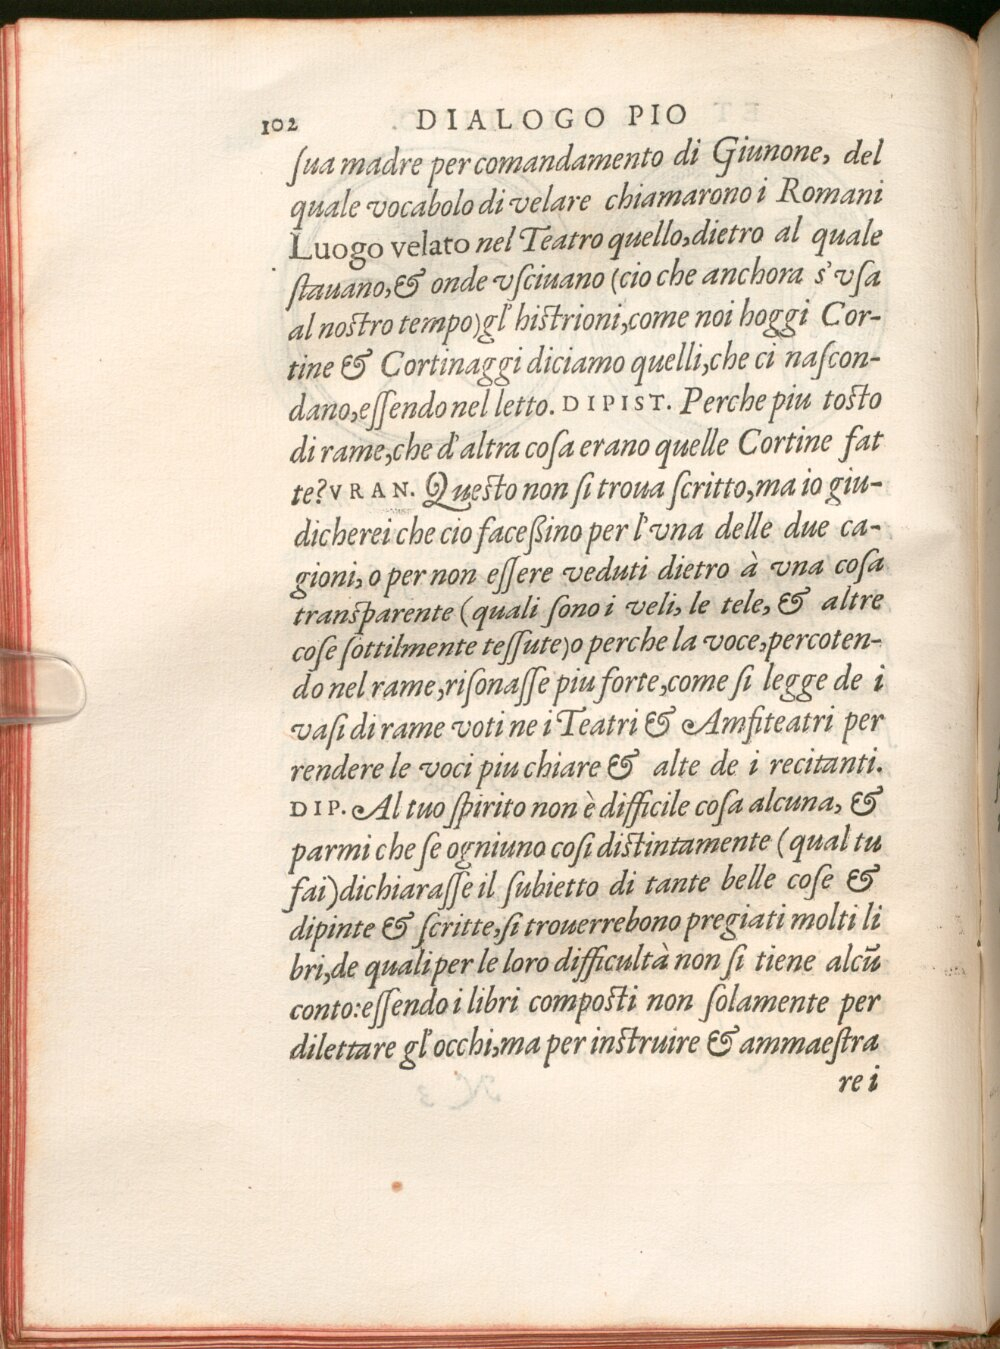 102 DIALOGO PIO
ſua madre per comandamento di Giunone, del
quale vocabolo di velare chiamarono i Romani
Luogo velato nel Teatro quello, dietro al quale
ſtauano, & onde vſciuano (cio che anchora s'vſa
al noſtro tempo) gl'hiſtrioni, come noi hoggi Cor-
tine & Cortinaggi diciamo quelli, che ci naſcon-
dano, eſſendo nel letto. DIPIST. Perche piu toſto
di rame, che d'altra coſa erano quelle Cortine fat
te? VRAN. Queſto non ſi troua ſcritto, ma io giu-
dicherei che cio faceßino per l'vna delle due ca-
gioni, o per non eſſere veduti dietro à vna coſa
tranſparente (quali ſono i veli, le tele, & altre
coſe ſottilmente teſſute) o perche la voce, percoten-
do nel rame, riſonaſſe piu forte, come ſi legge de i
vaſi di rame voti ne i Teatri & Amfiteatri per
rendere le voci piu chiare & alte de i recitanti.
DIP. Al tuo ſpirito non è difficile coſa alcuna, &
parmi che ſe ogniuno coſi diſtintamente (qual tu
fai) dichiaraſſe il ſubietto di tante belle coſe &
dipinte & ſcritte, ſi trouerrebono pregiati molti li
bri, de quali per le loro difficultà non ſi tiene alcũ
conto: eſſendo i libri compoſti non ſolamente per
dilettare gl'occhi, ma per inſtruire & ammaeſtra
re i